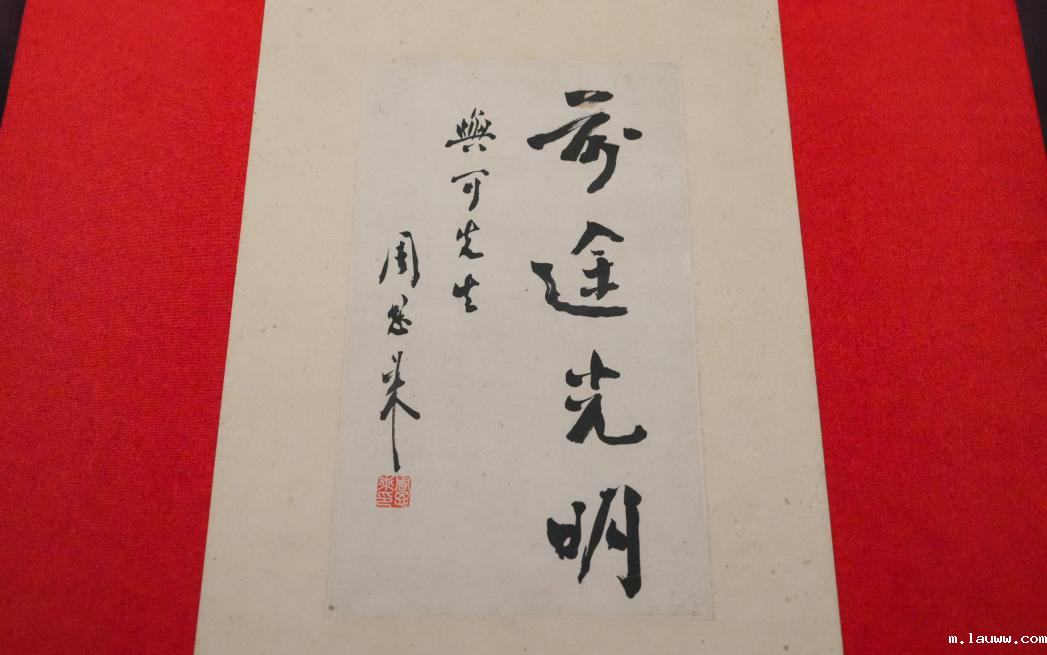 前途光明
與可先生
周恩来
m.lauww.com